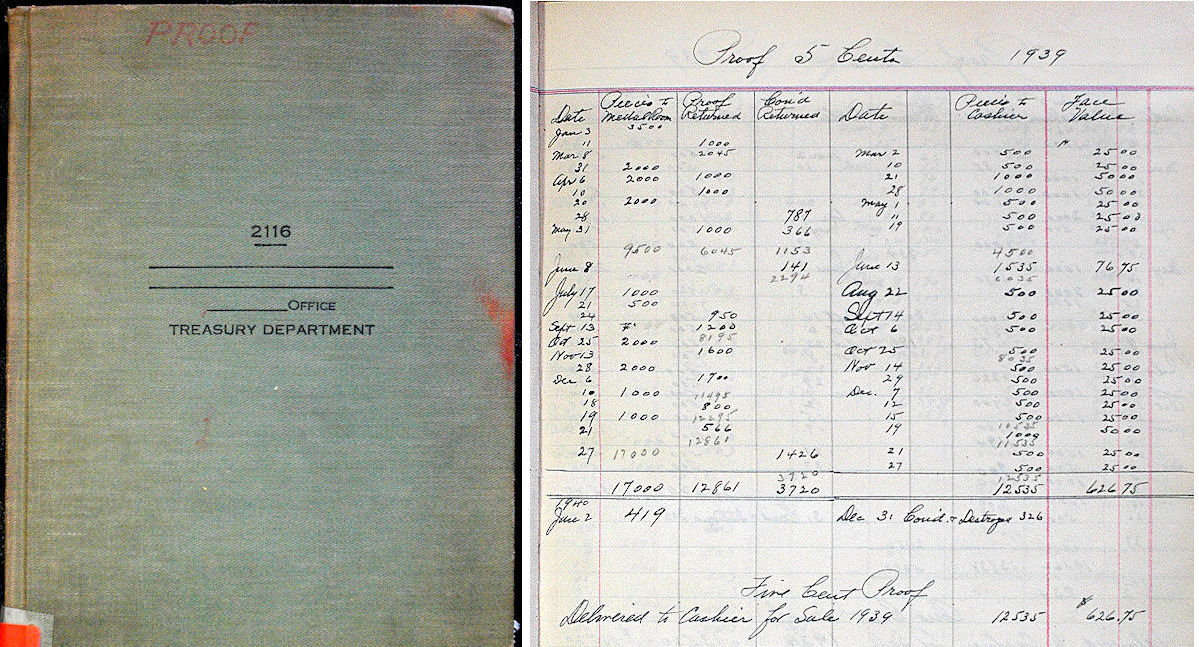 PROOF
2116
OFFICE
TREASURY DEPARTMENT
Proof 5 Cents 1939
Date Pieces to Medal Room Proof Returned Cond Returned Date Pieces to Cashier Face Value
Jan 3 3500
11 1000
Mar 8 2045 Mar 2 500 25 00
31 2000 10 500 25 00
Apr 6 2000 1000 21 1000 50 00
10 1000 28 1000 50 00
20 2000 May 1 500 25 00
28 787 11 500 25 00
May 31 1000 366 19 500 25 00
9500 6045 1153 4500
June 8 141 June 13 1535 76 75
2294 6035
July 17 1000 Aug 22 500 25 00
21 500
24 950 Sept 14 500 25 00
Sept 13 1200 Oct 6 500 25 00
8195
Oct 25 2000
Nov 13 1600 Oct 25 500 25 00
8035
28 2000 Nov 14 500 25 00
Dec 6 1700 29 500 25 00
10 1000 11495 Dec. 7 500 25 00
18 800 12 500 25 00
19 1000 12295 15 500 25 00
21 566 19 10535 1000 50 00
12861 11535
27 17000 1426 21 500 25 00
27 500 25 00
3720 12535
17000 12861 3720 12535 626 75
1940
June 2 419 Dec 31 Cond. & Destroyed 326
Five Cent Proof
Delivered to Cashier for Sale 1939 12535 $626.75